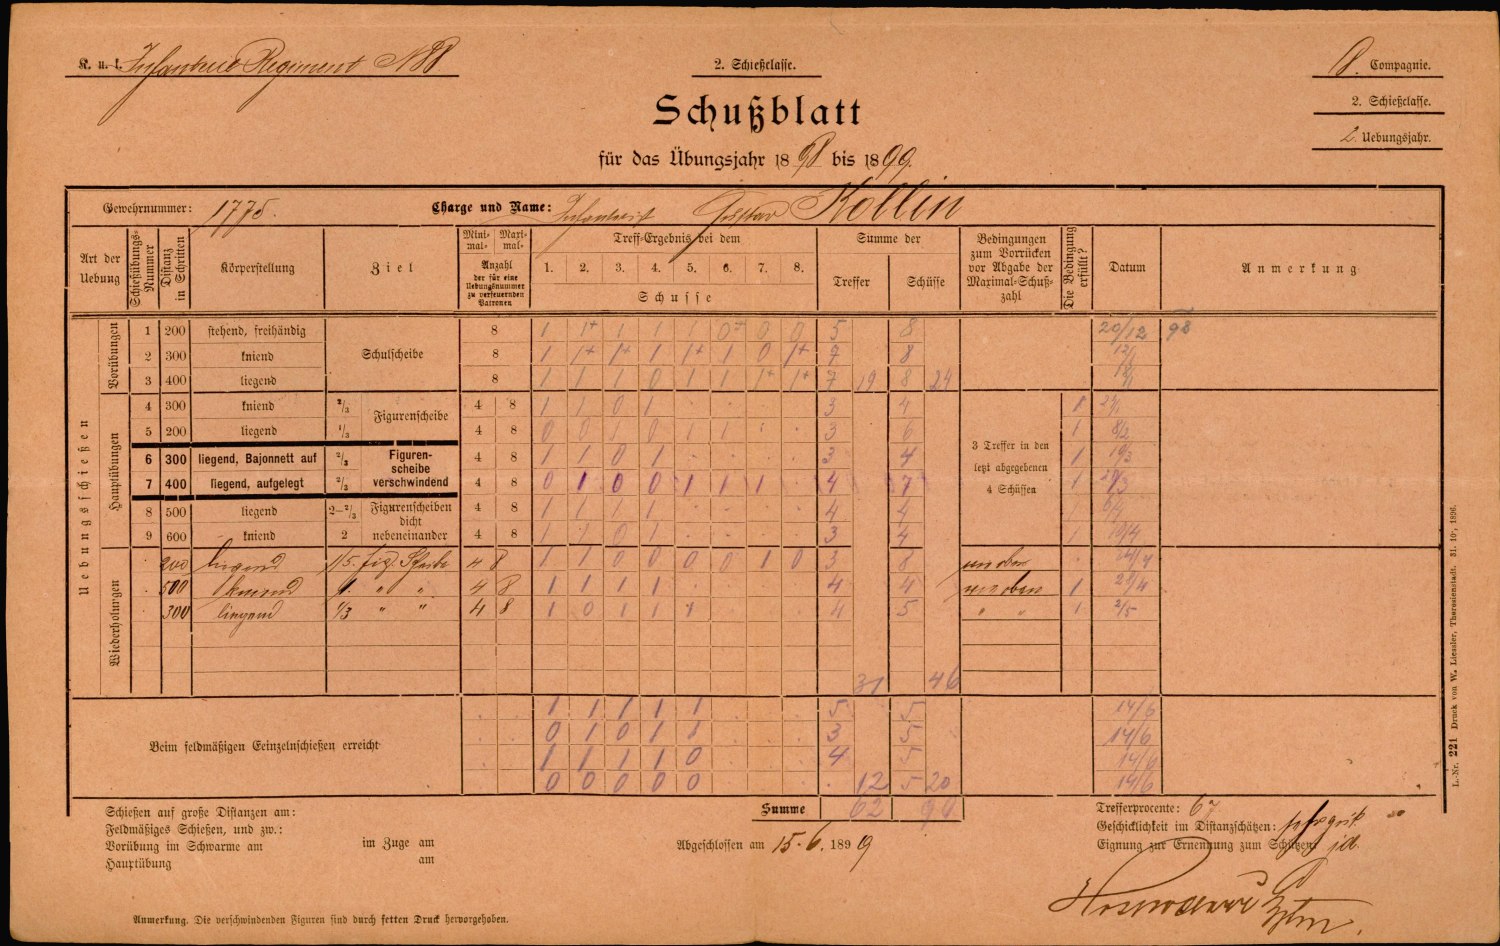 K. u. k. Infanterie Regiment N 88
2. Schießclasse.
8. Compagnie.
2. Schießclasse.
2. Uebungsjahr.
Schußblatt
für das Übungsjahr 1898 bis 1899.
Gewehrnummer: 1775. Charge und Name: Infanterist Gustav Kollin
Art der Uebung Schießübungs-Nummer Distanz in Schritten Körperstellung Ziel Mini-mal- Maxi-mal- Anzahl der für eine Uebungsnummer zu verfeuernden Patronen Treff-Ergebnis bei dem 1. 2. 3. 4. 5. 6. 7. 8. Schusse Summe der Treffer Schüsse Bedingungen zum Vorrücken vor Abgabe der Maximal-Schuß-zahl Die Bedingung erfüllt? Datum Anmerkung
Uebungsschießen
Vorübungen
1 200 stehend, freihändig 8 1 1+ 1 1 1 0+ 0 0 5 8 20/12 98
2 300 kniend Schulscheibe 8 1 1+ 1+ 1 1+ 1 0 1+ 7 8
3 400 liegend 8 1 1 1 0 1 1 1+ 1+ 7 19 8 24
Hauptübungen
4 300 kniend 2/3 Figurenscheibe 4 8 1 1 0 1 3 4 1
5 200 liegend 1/3 4 8 0 0 1 0 1 1 3 6 1 8/2
6 300 liegend, Bajonnett auf 2/3 Figuren-scheibe verschwindend 4 8 1 1 0 1 3 4 1
7 400 liegend, aufgelegt 2/3 4 8 0 1 0 0 1 1 1 4 7 1
3 Treffer in den letzt abgegebenen 4 Schüssen
8 500 liegend 2–2/3 Figurenscheiben dicht nebeneinander 4 8 1 1 1 1 4 4 1
9 600 kniend 2 4 8 1 1 0 1 3 4 1 10/4
Wiederholungen
200 liegend 1/3. Fig. Scheibe 4 8 1 1 0 0 0 0 1 0 3 8 wie oben
500 kniend 1. " " 4 8 1 1 1 1 4 4 wie oben 1 28/4
300 liegend 1/3 " " 4 8 1 0 1 1 1 4 5 " " 1 2/5
31 46
Beim feldmäßigen Eeinzelnschießen erreicht
1 1 1 1 1 5 5 14/6
0 1 0 1 1 3 5 14/6
1 1 1 1 0 4 5 14/6
0 0 0 0 0 . 12 5 20 14/6
Summe 62 90
Schießen auf große Distanzen am:
Feldmäßiges Schießen, und zw.:
Vorübung im Schwarme am im Zuge am
Hauptübung am
Abgeschlossen am 15. 6. 1899
Trefferprocente: 67
Geschicklichkeit im Distanzschätzen: sehr gut
Eignung zur Ernennung zum Schützen: ja
Anmerkung. Die verschwindenden Figuren sind durch fetten Druck hervorgehoben.
L.-Nr. 221 Druck von W. Liessler, Theresienstadt. 31. 10., 1896.